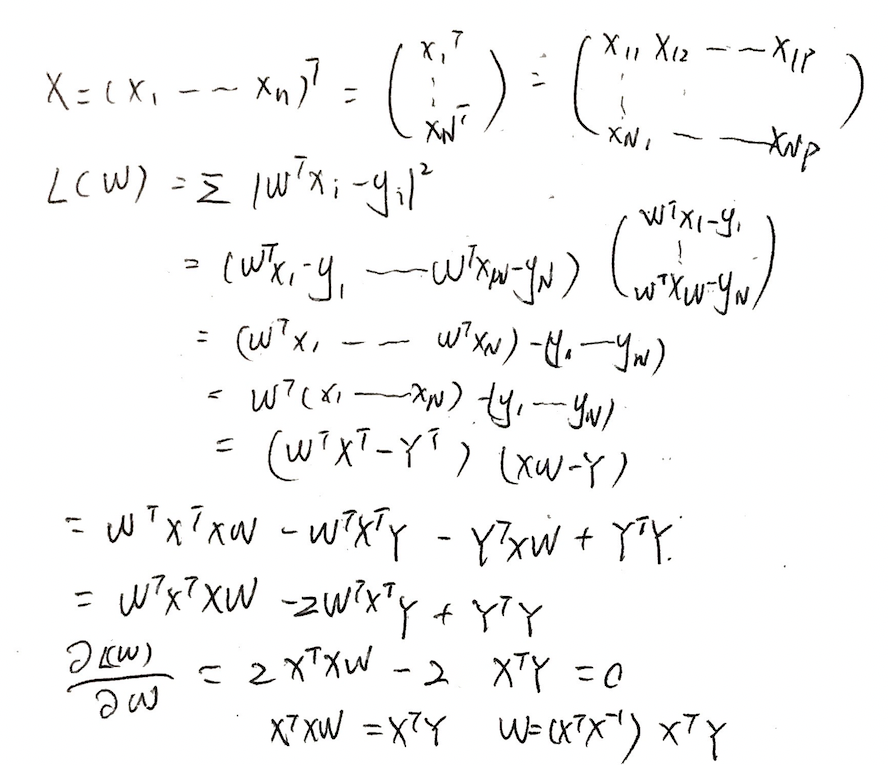 X = (x₁ -- xₙ)ᵀ = (x₁ᵀ ⋮ x_Nᵀ) = (x₁₁ x₁₂ -- x₁P ⋮ x_N₁ -- x_NP)
L(W) = Σ |Wᵀxᵢ - yᵢ|²
= (Wᵀx₁ - y₁ — Wᵀx_N - y_N) (Wᵀx₁ - y₁ ⋮ Wᵀx_N - y_N)
= (Wᵀx₁ -- Wᵀx_N) - (y₁ — y_N)
= Wᵀ(x₁ — x_N) - (y₁ — y_N)
= (WᵀXᵀ - Yᵀ) (XW - Y)
= WᵀXᵀXW - WᵀXᵀY - YᵀXW + YᵀY
= WᵀXᵀXW - 2WᵀXᵀY + YᵀY
∂L(W)/∂W = 2XᵀXW - 2 XᵀY = 0
XᵀXW = XᵀY W = (XᵀX⁻¹) XᵀY